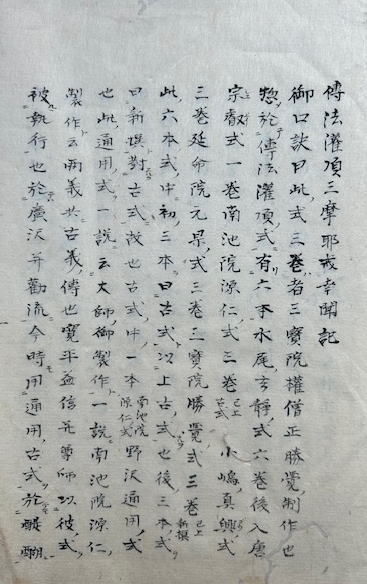 傳法灌頂三摩耶戒幸聞記
御口訣曰此式三巻者三寳院權僧正勝覺制作也
惣於傳法灌頂式有六本水尾玄靜式六巻後入唐
宗叡式一巻南池院源仁式三巻已上古式小嶋真興式
三巻延命院元杲式三巻三寳院勝覺式三巻已上新撰
此六本式中初三本曰古式以上古式也後三本式
曰新撰對古式故也古式中一本南池院源仁式野沢通用式
也此通用式一説云大師御製作一説南池院源仁
製作云両義共古義傳也寛平益信元尊師以彼式
被執行也於廣沢并勸流今時用通用古式於醍醐